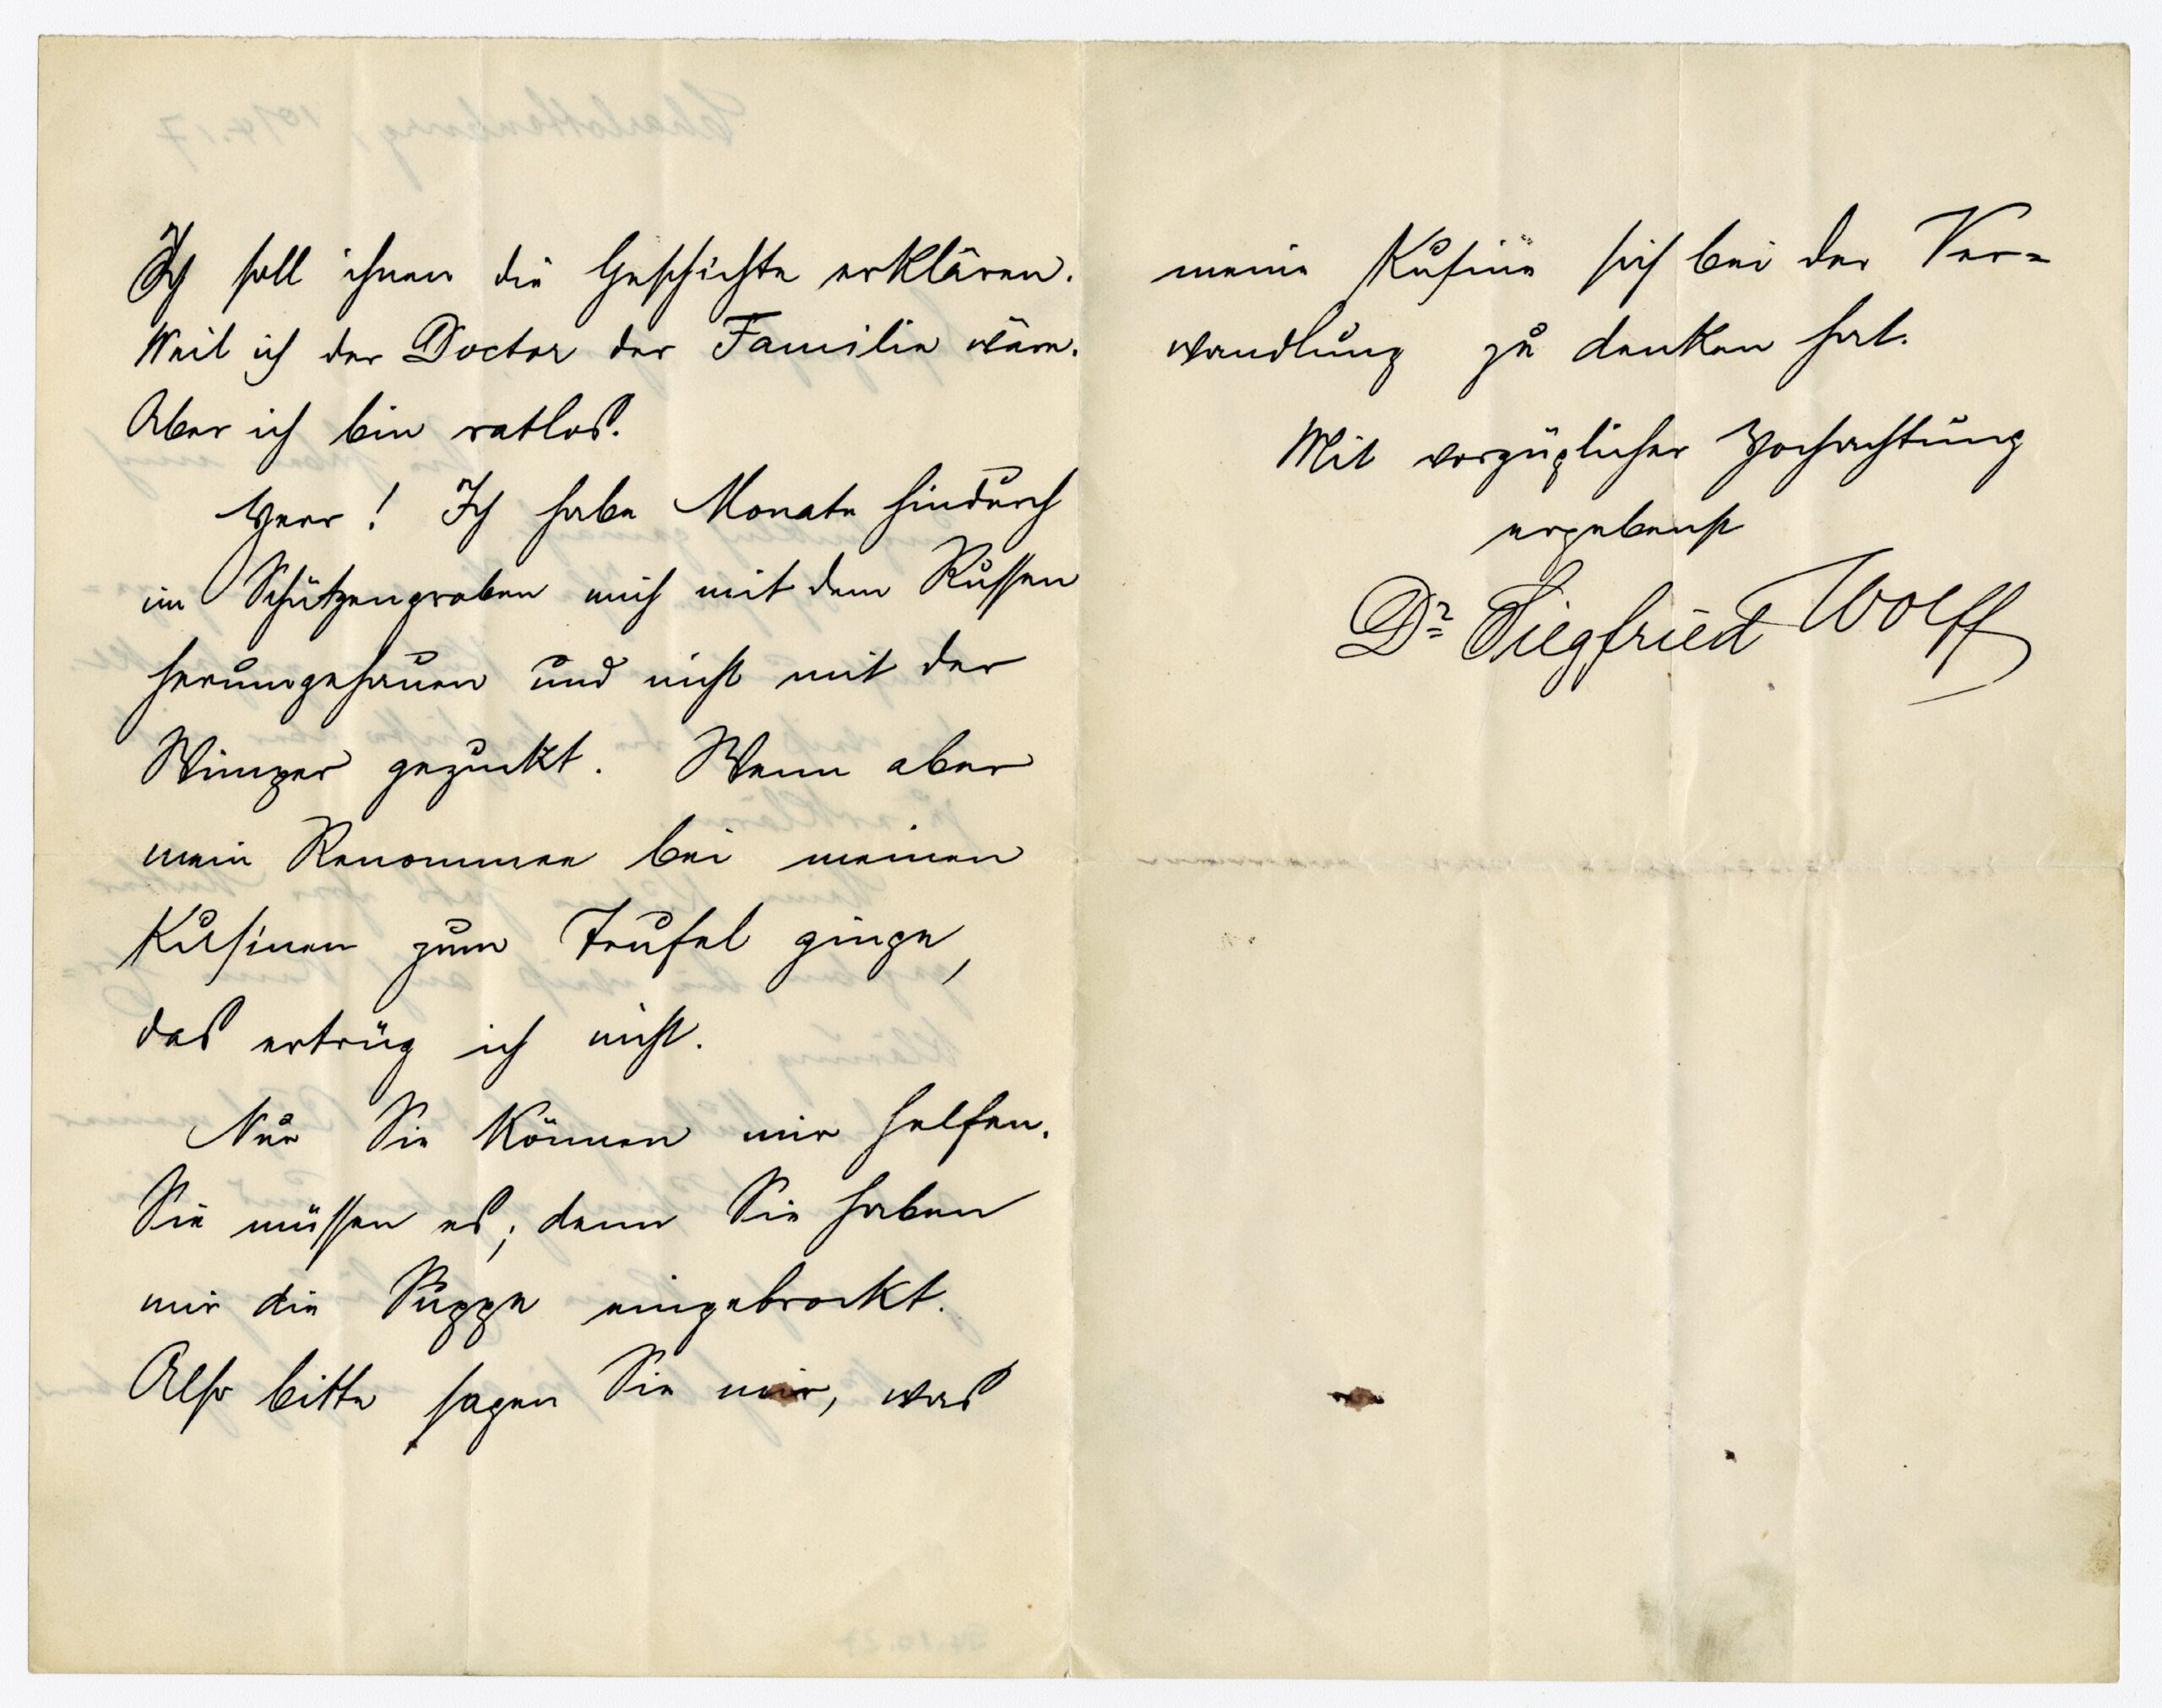 Ich soll ihnen die Geschichte erklären.
Weil ich der Doctor der Familie wäre.
Aber ich bin ratlos.
Herr! Ich habe Monate hindurch
im Schützengraben mich mit dem Russen
herumgehauen und nicht mit der
Wimper gezuckt. Wenn aber
mein Renommee bei meinen
Kusinen zum Teufel ginge,
das ertrüg ich nicht.
Nur Sie können mir helfen.
Sie müssen es; denn Sie haben
mir die Suppe eingebrockt.
Also bitte sagen Sie mir, was
meine Kusine sich bei der Ver=
wandlung zu denken hat.
Mit vorzüglicher Hochachtung
ergebenst
Dr Siegfried Wolff